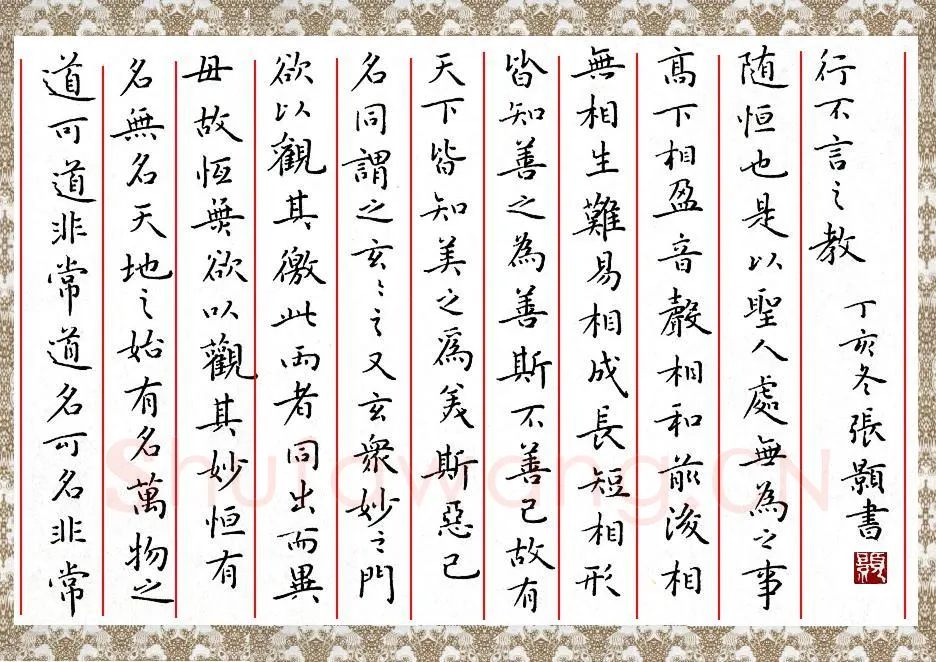 道可道非常道名可名非常
名無名天地之始有名萬物之
母故恆無欲以觀其妙恒有
欲以觀其徼此兩者同出而異
名同謂之玄〻之又玄衆妙之門
天下皆知美之為美斯惡已
皆知善之為善斯不善已故有
無相生難易相成長短相形
高下相盈音聲相和前後相
随恒也是以聖人處無為之事
行不言之教
丁亥冬張顥書
Shufawang.CN